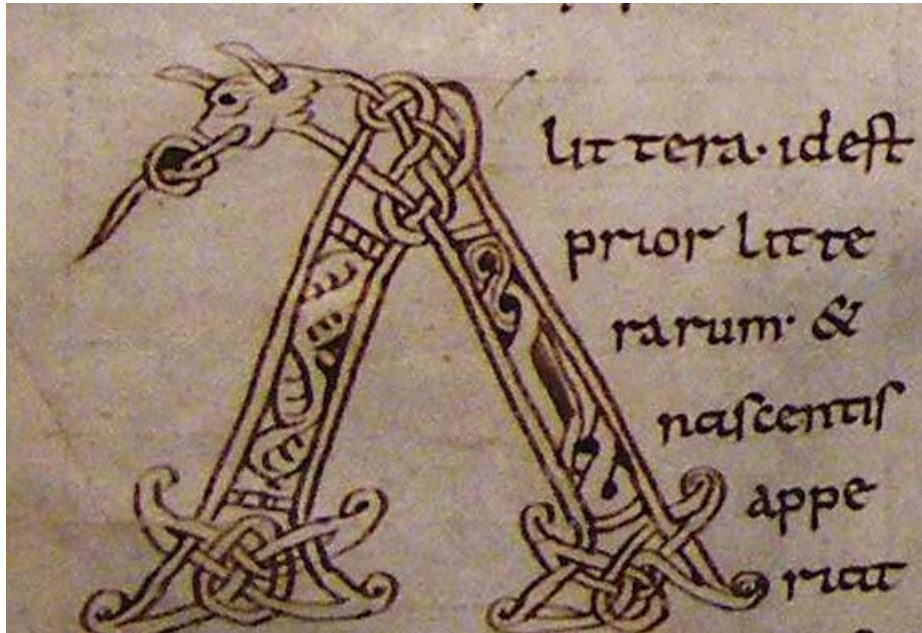 A littera· idest
prior litte
rarum· &
nascentis
appe
riat